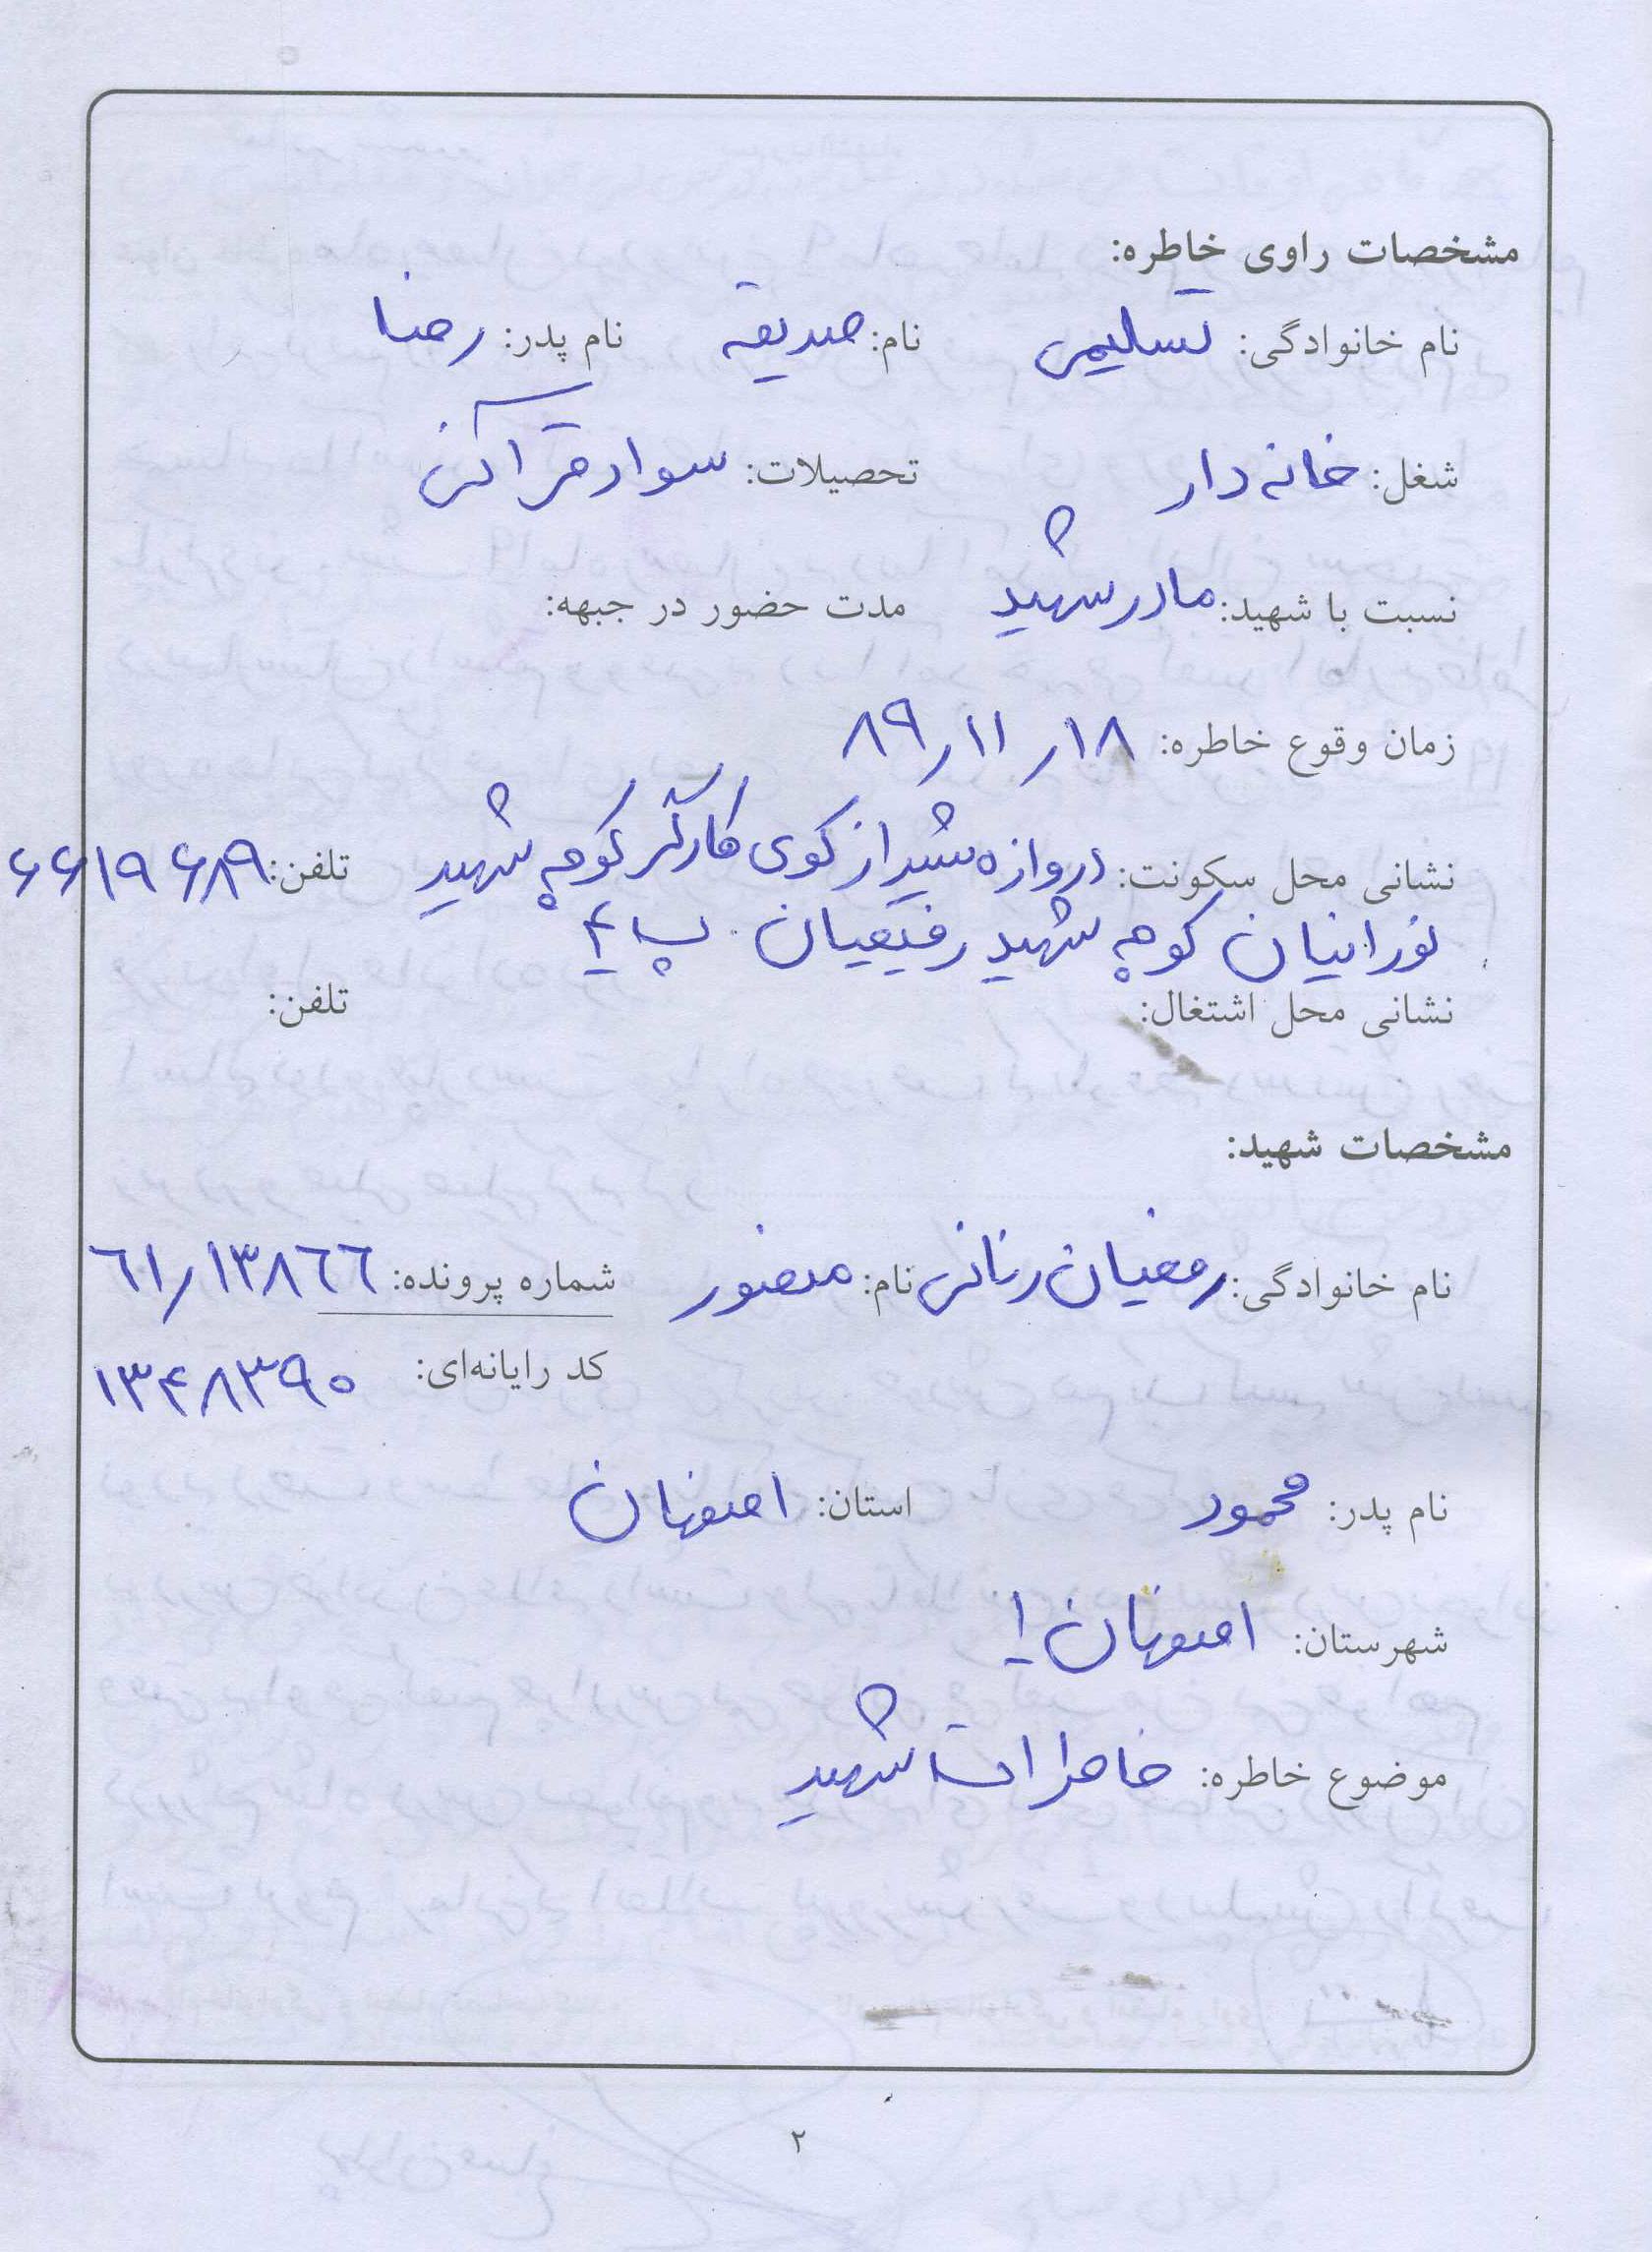 مشخصات راوی خاطره:
نام خانوادگی: تسلیمی نام: صدیقه نام پدر: رضا
شغل: خانه دار تحصیلات: سواد قرآنی
نسبت با شهید: مادر شهید مدت حضور در جبهه:
زمان وقوع خاطره: ۱۸ / ۱۱ / ۸۹
نشانی محل سکونت: دروازه شیراز کوی کارگر کوچه شهید تلفن: ۶۶۱۹۶۸۹
نورانیان کوچه شهید رفیعیان . پ ۴
نشانی محل اشتغال: تلفن:
مشخصات شهید:
نام خانوادگی: رفعیان رنانی نام: منصور شماره پرونده: ۶۱/۱۳۸۶۶
کد رایانه‌ای: ۱۳۴۸۳۹۰
نام پدر: محمود استان: اصفهان
شهرستان: اصفهان ۱
موضوع خاطره: خاطرات شهید
۲